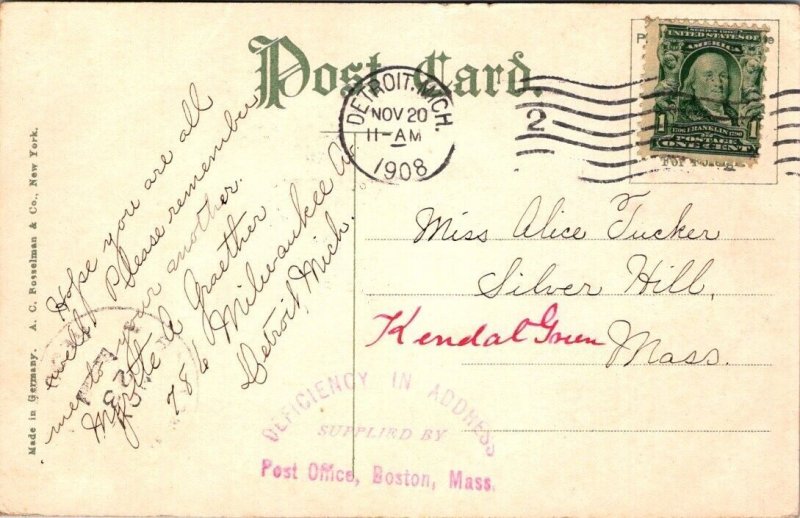 Post Card.
DETROIT, MICH.
NOV 20
11-AM
1908
2
SERIES 1902
UNITED STATES OF
AMERICA
1 FRANKLIN 1
POSTAGE
ONE CENT
For Foreign
Hope you are all
well. Please remember
me to your mother.
Graether
786 Milwaukee Av
Detroit, Mich.
Miss Alice Tucker
Silver Hill,
Kendal Green Mass.
DEFICIENCY IN ADDRESS
SUPPLIED BY
Post Office, Boston, Mass.
Made in Germany. A. C. Bosselman & Co., New York.